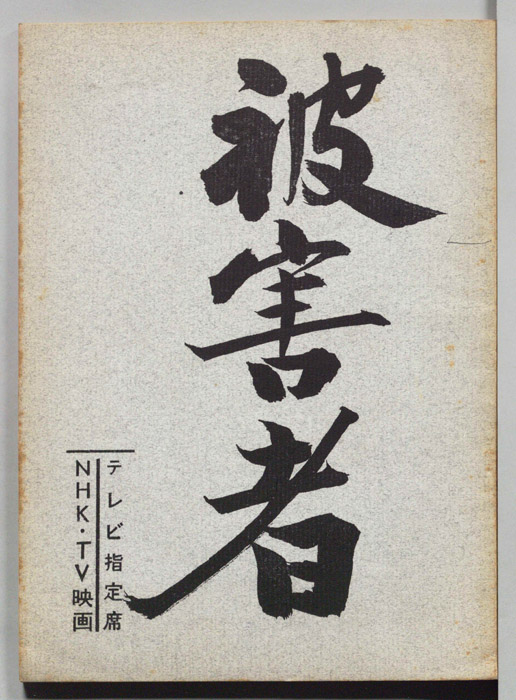 被害者
テレビ指定席
NHK・TV映画